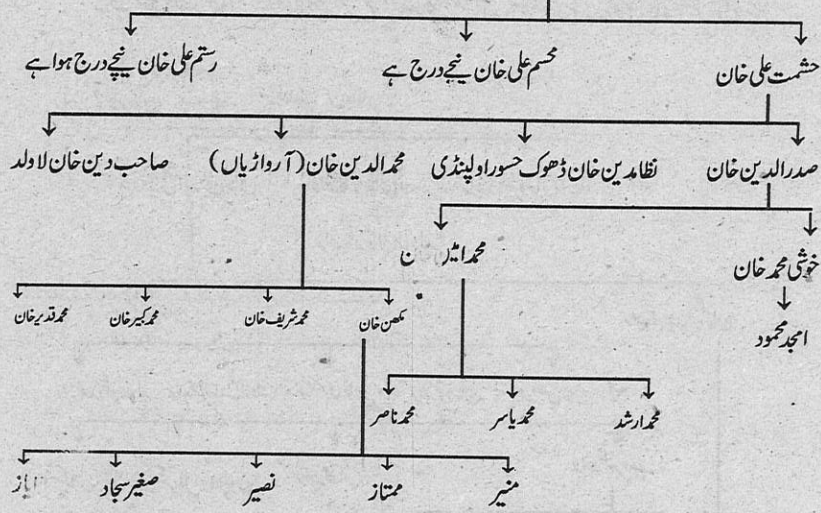 حشمت علی خان محسم علی خان نیچے درج ہے رستم علی خان نیچے درج ہوا ہے
صدرالدین خان نظامدین خان ڈھوک حسو راولپنڈی محمد الدین خان (آرواڑیاں) صاحب دین خان لاولد
خوشی محمد خان محمد
امجد محمود
مکھن خان محمد شریف خان محمد کبیر خان محمد قدیر خان
محمد ارشد محمد یاسر محمد ناصر
منیر ممتاز نصیر صغیر سجاد ایاز